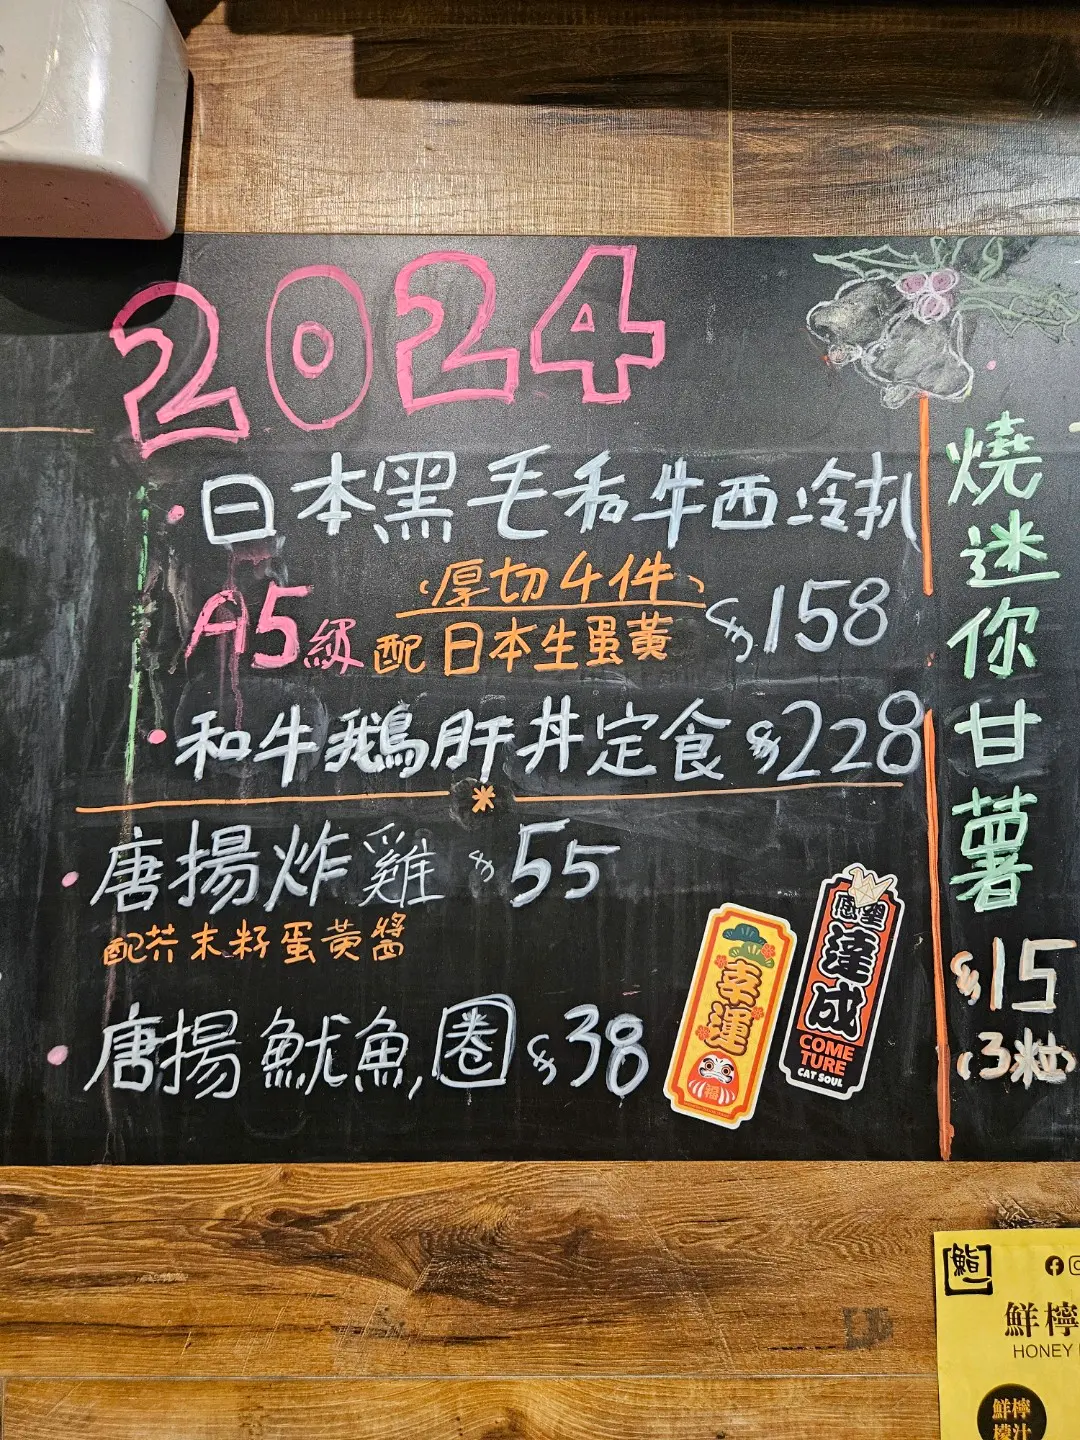 2024
日本黑毛和牛西冷扒
(厚切4件)
A5級 配日本生蛋黃 $158
和牛鵝肝丼定食 $228
唐揚炸雞 $55
配芥末籽蛋黃醬
唐揚魷魚圈 $38
燒迷你甘薯
$15
(3粒)
幸運
福
願望
達成
COME
TURE
CAT SOUL
鮨
鮮檸
HONEY
鮮檸
檬汁